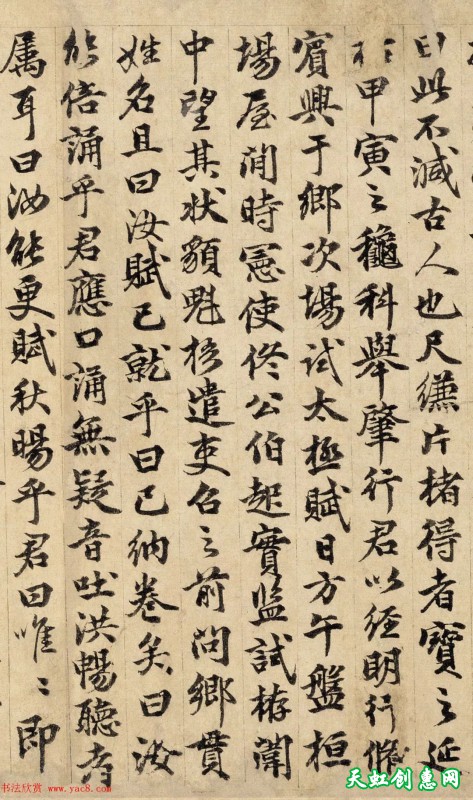 印此不减古人也尺縑片楮得者寶之延
祐甲寅之龝科舉肇行君以經明行脩
賓興于鄉次場試太極賦日方午盤桓
場屋間時憲使佟公伯起實監試於闈
中望其狀貌魁梧遣吏召之前問鄉貫
姓名且曰汝賦已就乎曰已納卷矣曰汝
能倍誦乎君應口誦無疑音吐洪暢聽者
属耳曰汝能更賦秋暘乎君曰唯〻即
书法欣赏 www.yac8.com
天虹创惠网